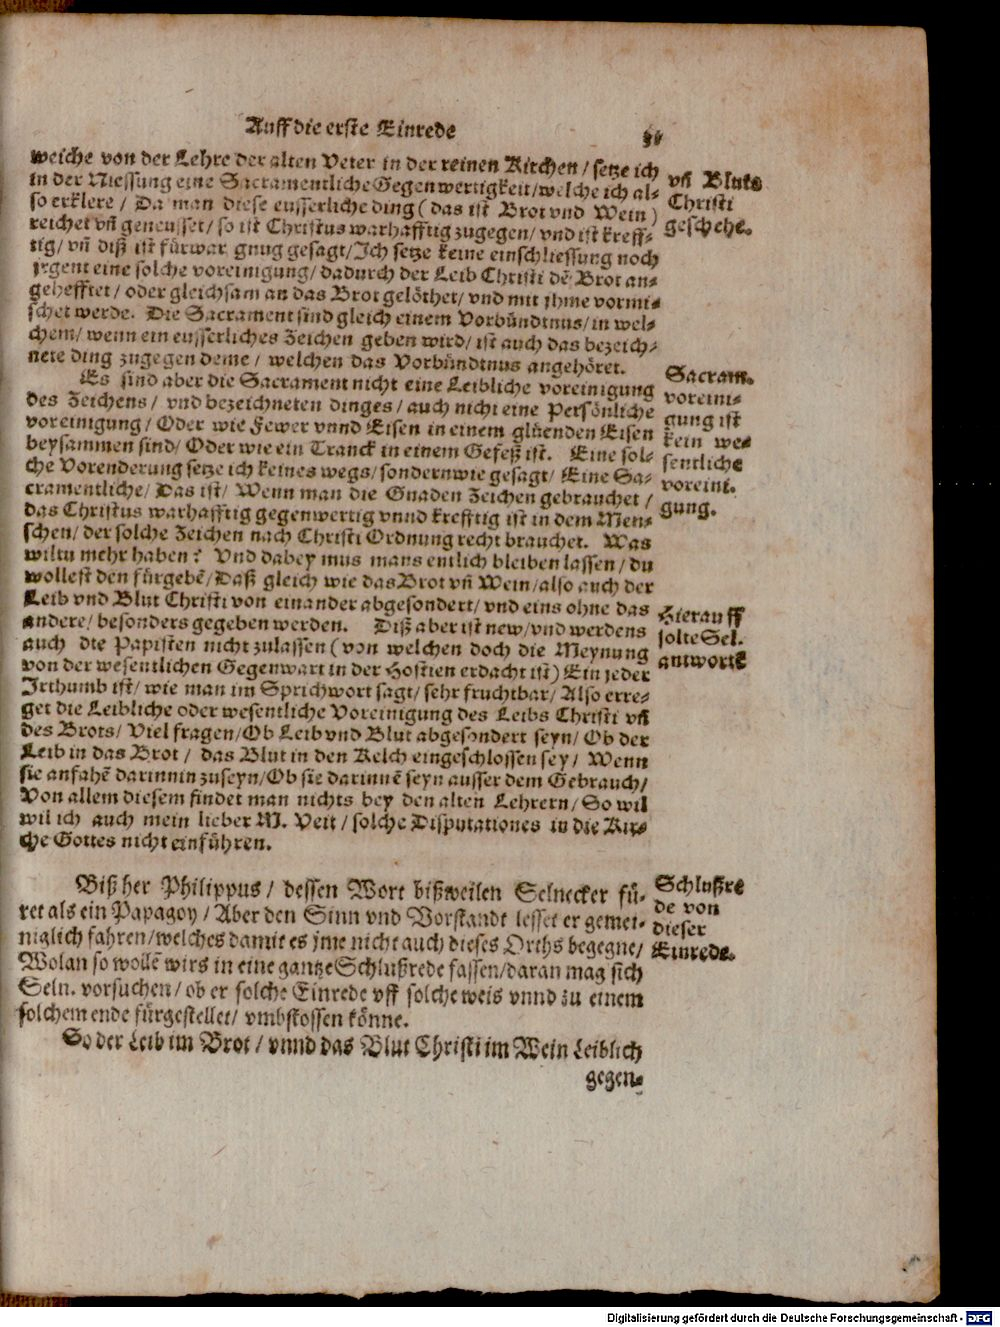 Auff die erste Einrede
weiche von der Lehre der alten Veter in der reinen Kirchen / setze ich
in der Niessung eine Sacramentliche Gegenwertigkeit/welche ich al-
so erklere / Da man diese eusserliche ding ( das ist Brot vnd Wein )
reichet vñ geneusset/ so ist Christus warhafftig zugegen/ vnd ist kreff-
tig/ vñ diß ist fürwar gnug gesagt/Ich setze keine einschliessung noch
jrgent eine solche voreinigung/ dadurch der Leib Christi dẽ Brot an-
gehefftet/ oder gleichsam an das Brot gelöthet/ vnd mit jhme vormi-
schet werde. Die Sacrament sind gleich einem Vorbündtnus/ in wel-
chem/ wenn ein eusserliches Zeichen geben wird/ ist auch das bezeich-
nete ding zugegen deme / welchen das Vorbündtnus angehöret.
Es sind aber die Sacrament nicht eine Leibliche voreinigung
des Zeichens / vnd bezeichneten dinges / auch nicht eine Persönliche
voreinigung/ Oder wie Fewer vnnd Eisen in einem glüenden Eisen
beysammen sind/ Oder wie ein Tranck in einem Gefeß ist. Eine sol-
che Vorenderung setze ich keines wegs/ sondern wie gesagt/ Eine Sa-
cramentliche/ Das ist/ Wenn man die Gnaden Zeichen gebrauchet /
das Christus warhafftig gegenwertig vnnd krefftig ist in dem Men-
schen/ der solche Zeichen nach Christi Ordnung recht brauchet. Was
wiltu mehr haben? Vnd dabey mus mans entlich bleiben lassen/ du
wollest den fürgebẽ/ Daß gleich wie das Brot vñ Wein/also auch der
Leib vnd Blut Christi von einander abgesondert/ vnd eins ohne das
andere/ besonders gegeben werden. Diß aber ist new/vnd werdens
auch die Papisten nicht zulassen (von welchen doch die Meynung
von der wesentlichen Gegenwart in der Hostien erdacht ist) Ein jeder
Irthumb ist/ wie man im Sprichwort sagt/ sehr fruchtbar/ Also erre-
get die Leibliche oder wesentliche Voreinigung des Leibs Christi vñ
des Brots/ Viel fragen/ Ob Leib vnd Blut abgesondert seyn/ Ob der
Leib in das Brot / das Blut in den Kelch eingeschlossen sey/ Wenn
sie anfahẽ darinnin zuseyn/Ob sie darinnẽ seyn ausser dem Gebrauch/
Von allem diesem findet man nichts bey den alten Lehrern/ So wil
wil ich auch mein lieber M. Veit / solche Disputationes in die Kir-
che Gottes nicht einführen.
Biß her Philippus / dessen Wort bißweilen Selnecker fü-
ret als ein Papagoy / Aber den Sinn vnd Vorstandt lesset er gemei-
niglich fahren/welches damit es jme nicht auch dieses Orths begegne/
Wolan so wollẽ wirs in eine gantze Schlußrede fassen/daran mag sich
Seln. vorsuchen/ ob er solche Einrede vff solche weis vnnd zu einem
solchem ende fürgestellet/ vmbstossen könne.
So der Leib im Brot / vnnd das Blut Christi im Wein Leiblich
gegen-
vñ Bluts
Christi
geschehe.
Sacram.
voreini-
gung ist
kein we-
sentliche
voreini-
gung.
Hierauff
solte Sel.
antworte
Schlußre
de von
dieser
Einrede.
Digitalisierung gefördert durch die Deutsche Forschungsgemeinschaft - DFG